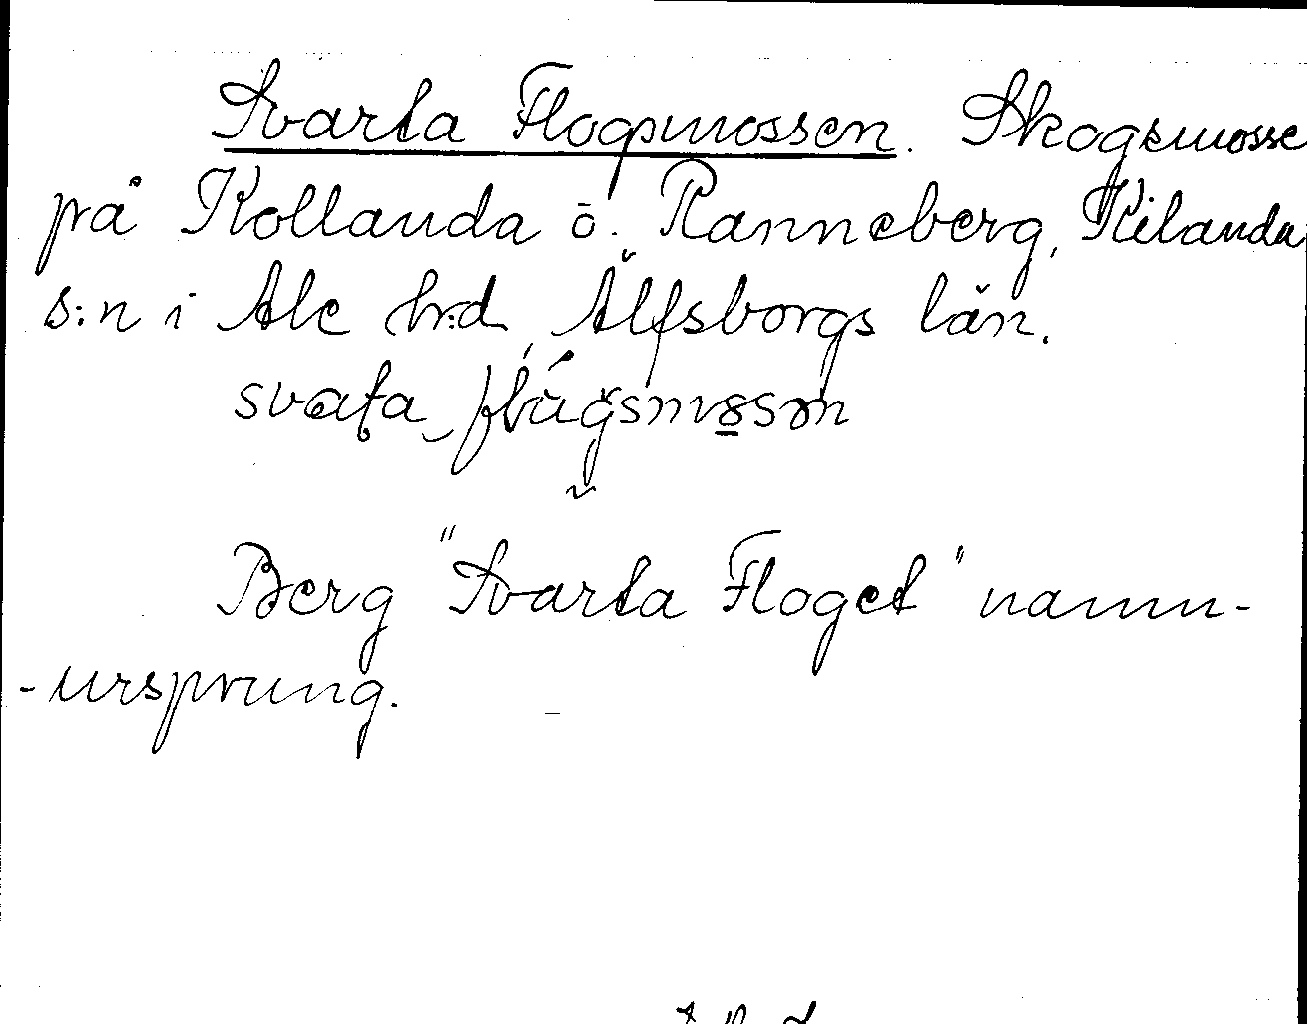 Svarta Flogsmossen. Skogsmosse
på Kollanda o. Ranneberg, Kilanda
s:n i Ale h:d, Älfsborgs län.
Berg "Svarta Floget" namn-
-ursprung.